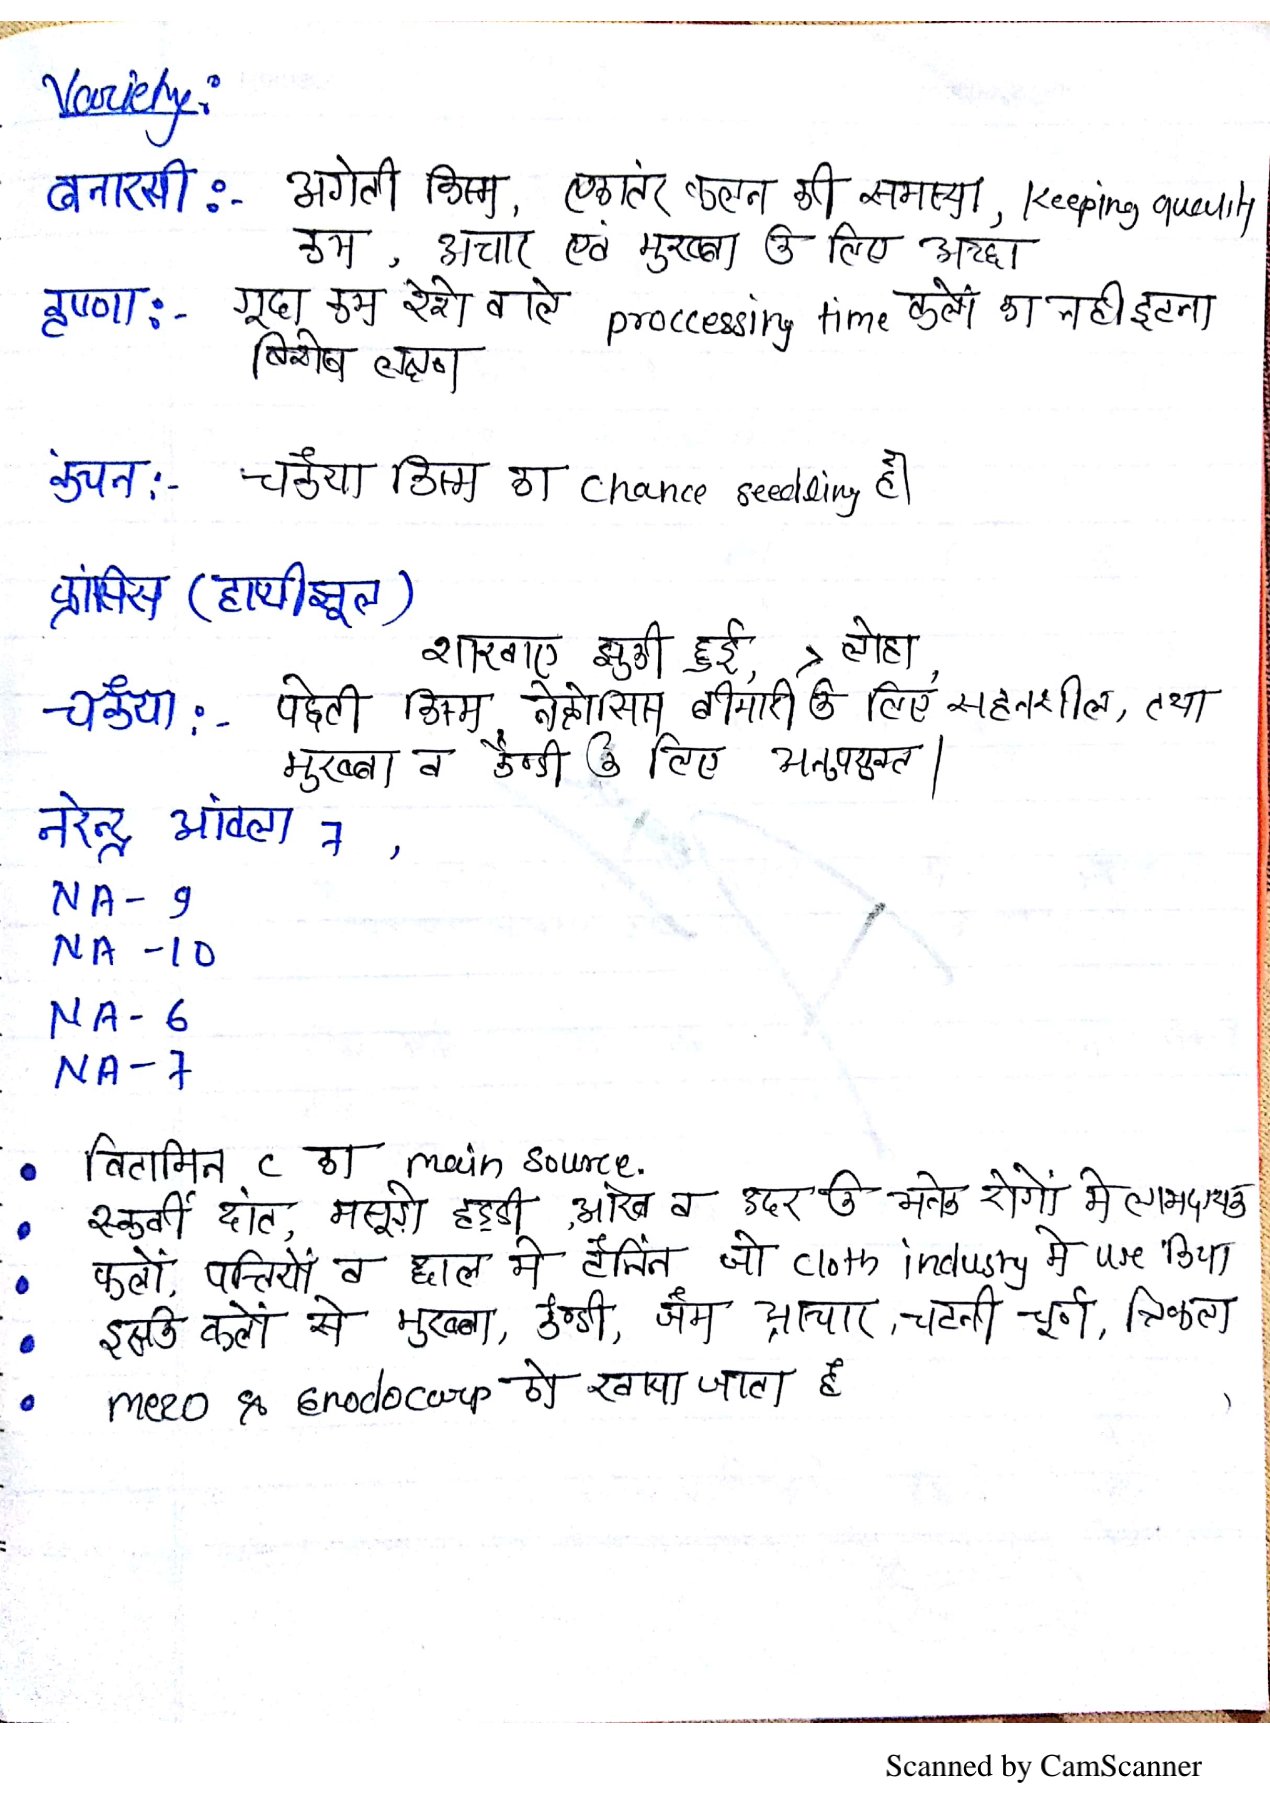 Variety:
बनारसी :- अगेती किस्म, एकांतर फलन की समस्या, keeping quality
कम, अचार एवं मुरब्बा के लिए अच्छा
कृष्णा :- गूदा कम रेशे वाले proccessing time फलों का नही इटना
विशेष लक्षण
कंचन :- चकैया किस्म का chance seedling है।
फ्रांसिस (हाथीझूल)
शाखाए झुकी हुई, > लोहा,
चकैया :- पछेती किस्म, नेक्रोसिस बीमारी के लिए सहनशील, तथा
मुरब्बा व कैण्डी के लिए अनुपयुक्त।
नरेन्द्र आंवला 7 ,
NA - 9
NA - 10
NA - 6
NA - 7
• विटामिन C का main source.
• स्कर्वी दांत, मसूड़े हड्डी, आंख व उदर के अनेक रोगों मे लाभदायक
• फलों, पत्तियों व छाल मे टैनिन जो cloth industry मे use किया
• इसके फलों से मुरब्बा, कैण्डी, जैम आचार, चटनी चूर्ण, त्रिफला
• mezo & Enodocarp को खाया जाता है
Scanned by CamScanner